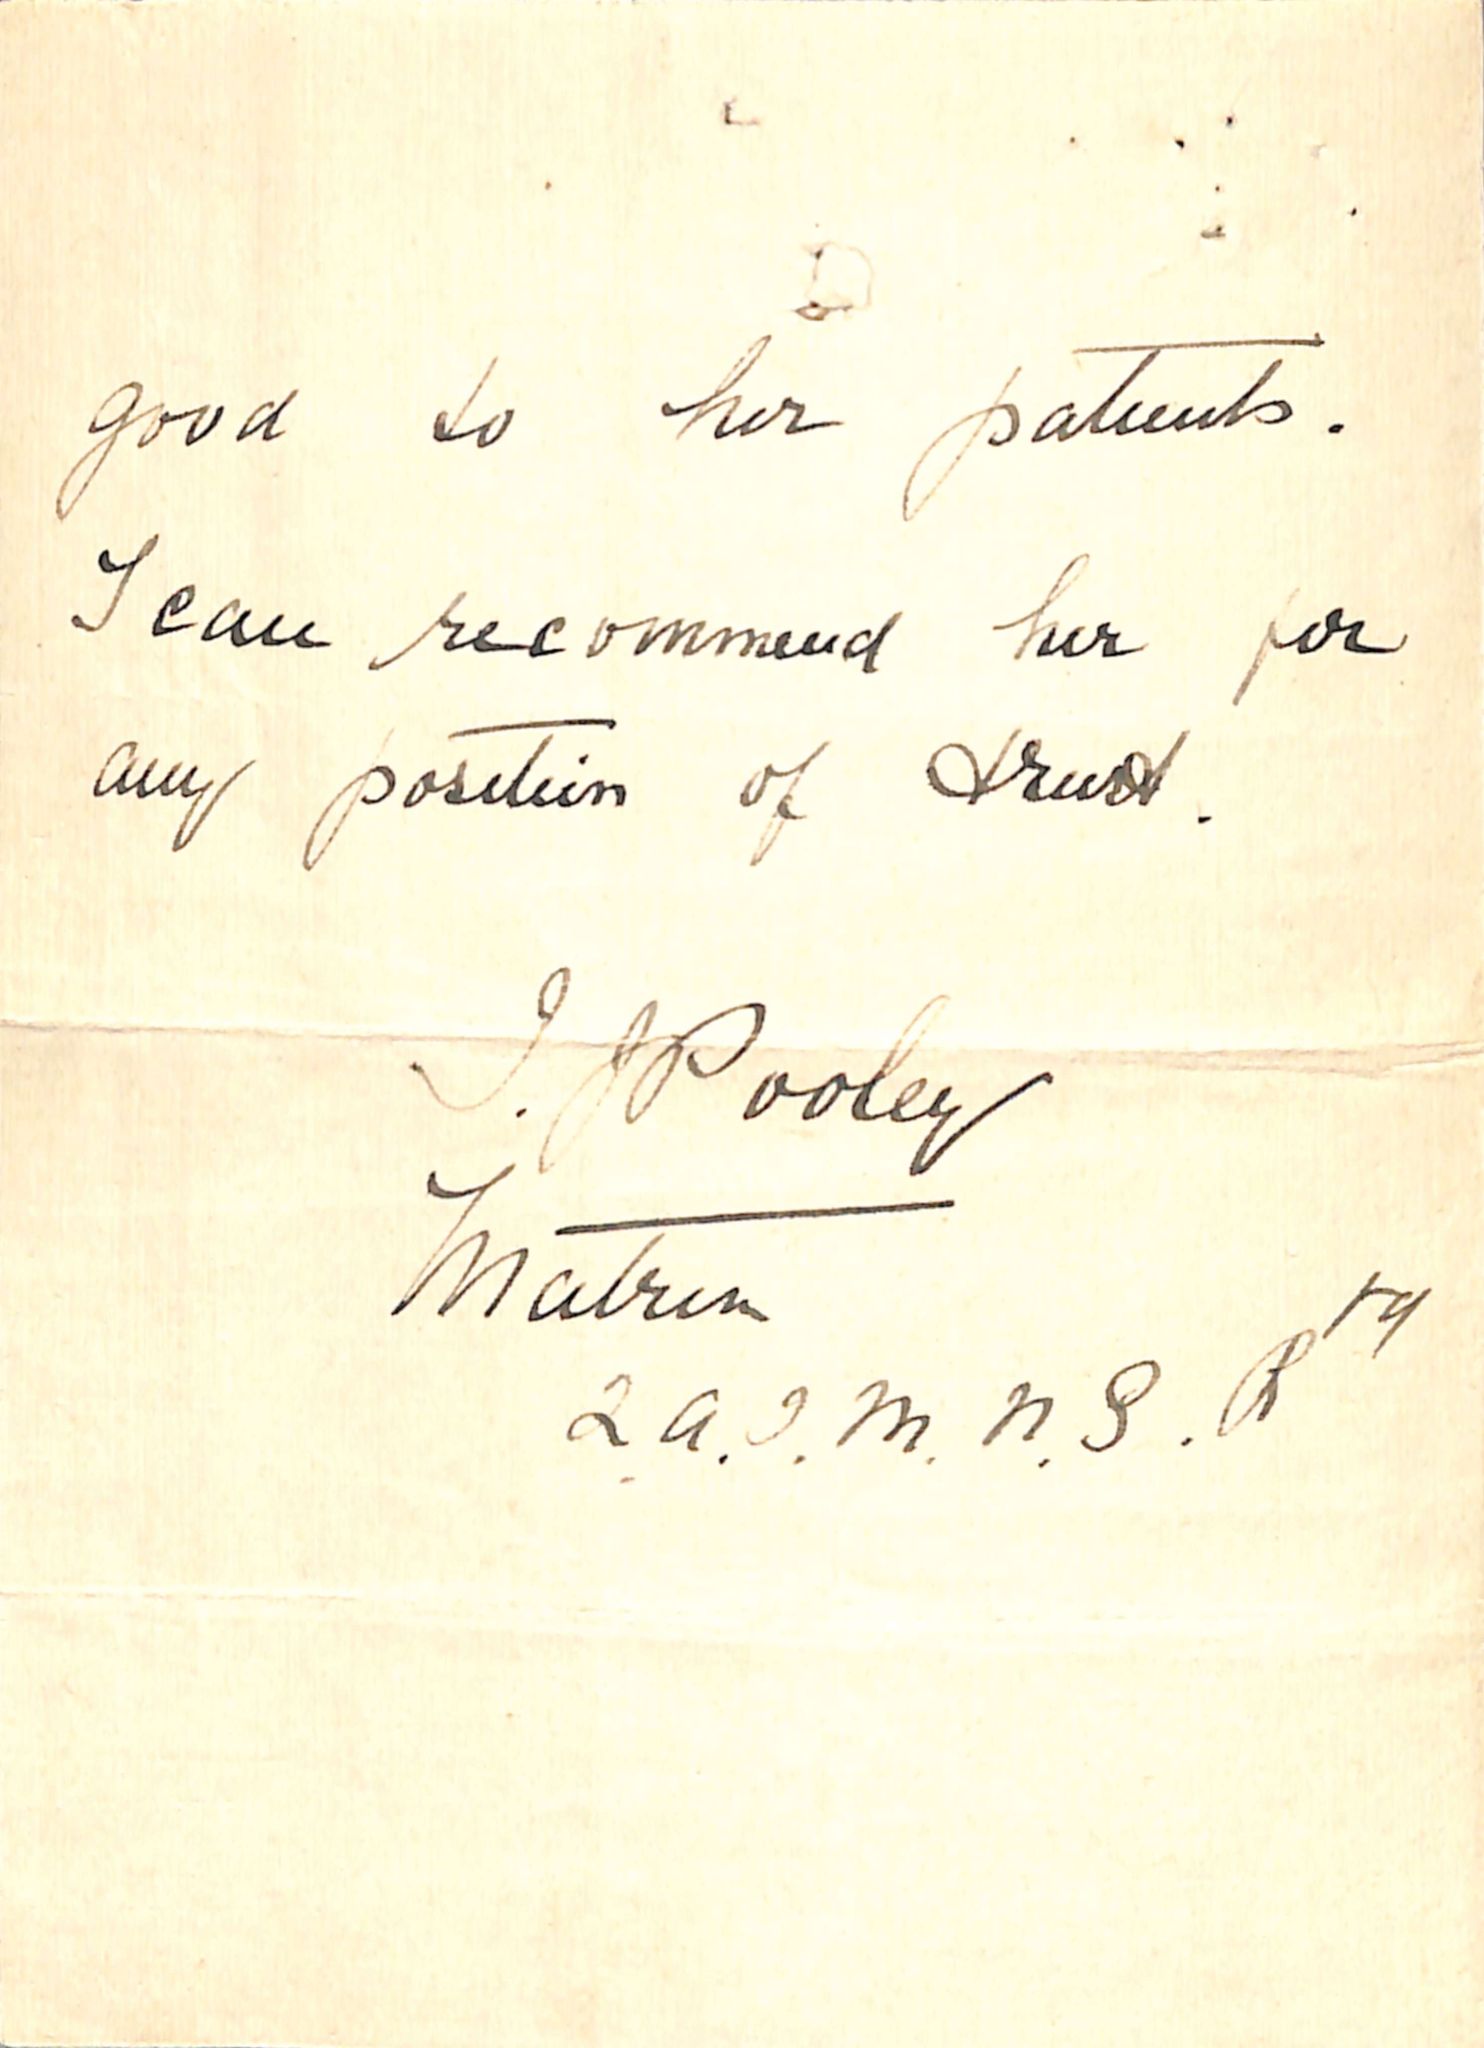 good to her patients.
I can recommend her for
any position of trust.
I. J Pooley
Matron
Q.A.I.M.N.S. R